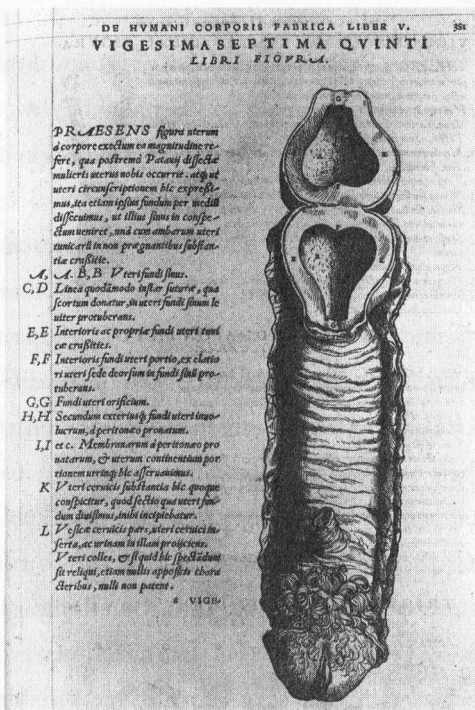 DE HVMANI CORPORIS FABRICA LIBER V. 381
VIGESIMASEPTIMA QVINTI
LIBRI FIGVRA.
PRAESENS figura uterum
à corpore exectum ea magnitudine re-
fert, qua postremò Patauij dissectæ
mulieris uterus nobis occurrit. atque ut
uteri circunscriptionem hic expressi-
mus, ita etiam ipsius fundum per mediũ
dissecuimus, ut illius sinus in conspe-
ctum ueniret, unà cum ambarum uteri
tunicarũ in non prægnantibus substan-
tiæ crassitie.
A, A. B, B Vteri fundi sinus.
C, D Linea quodãmodo instar suturæ, qua
scortum donatur, in uteri fundi sinum le
uiter protuberans.
E, E Interioris ac propriæ fundi uteri tuni
cæ crassities.
F, F Interioris fundi uteri portio, ex elatio
ri uteri sede deorsum in fundi sinũ pro-
tuberans.
G, G Fundi uteri orificium.
H, H Secundum exteriusq́; fundi uteri inuo-
lucrum, à peritonæo pronatum.
I, I et c. Membranarum à peritonæo pro
natarum, & uterum continentium por
tionem utrinq; hic asseruauimus.
K Vteri ceruicis substantia hic quoque
conspicitur, quod sectio qua uteri fun-
dum diuisimus, inibi incipiebatur.
L Vesicæ ceruicis pars, uteri ceruici in-
serta, ac urinam in illam proijciens.
Vteri colles, & si quid hic spectãdum
sit reliqui, etiam nullis appositis chara
cteribus, nulli non patent.
VIGE-